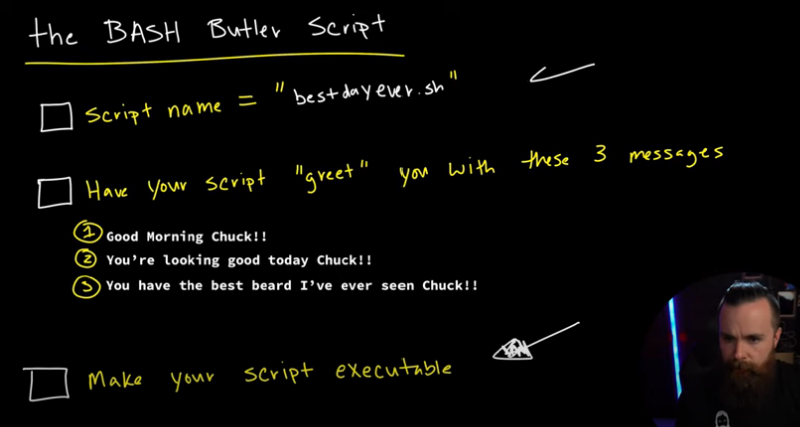 the BASH Butler Script
Script name = "bestdayever.sh"
Have your script "greet" you with these 3 messages
1 Good Morning Chuck!!
2 You're looking good today Chuck!!
3 You have the best beard I've ever seen Chuck!!
Make your script executable